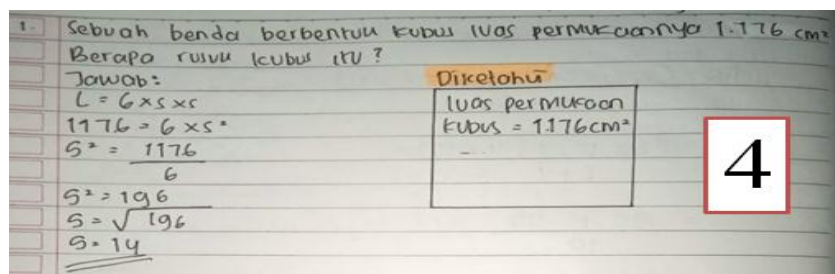 1. Sebuah benda berbentuk kubus luas permukaannya 1.176 cm²
Berapa rusuk kubus itu ?
Jawab:
L = 6 × s × s
1176 = 6 × s²
S² = 1176
6
S² = 196
S = √196
S = 14
Diketahui
luas permukaan
kubus = 1.176 cm²
4